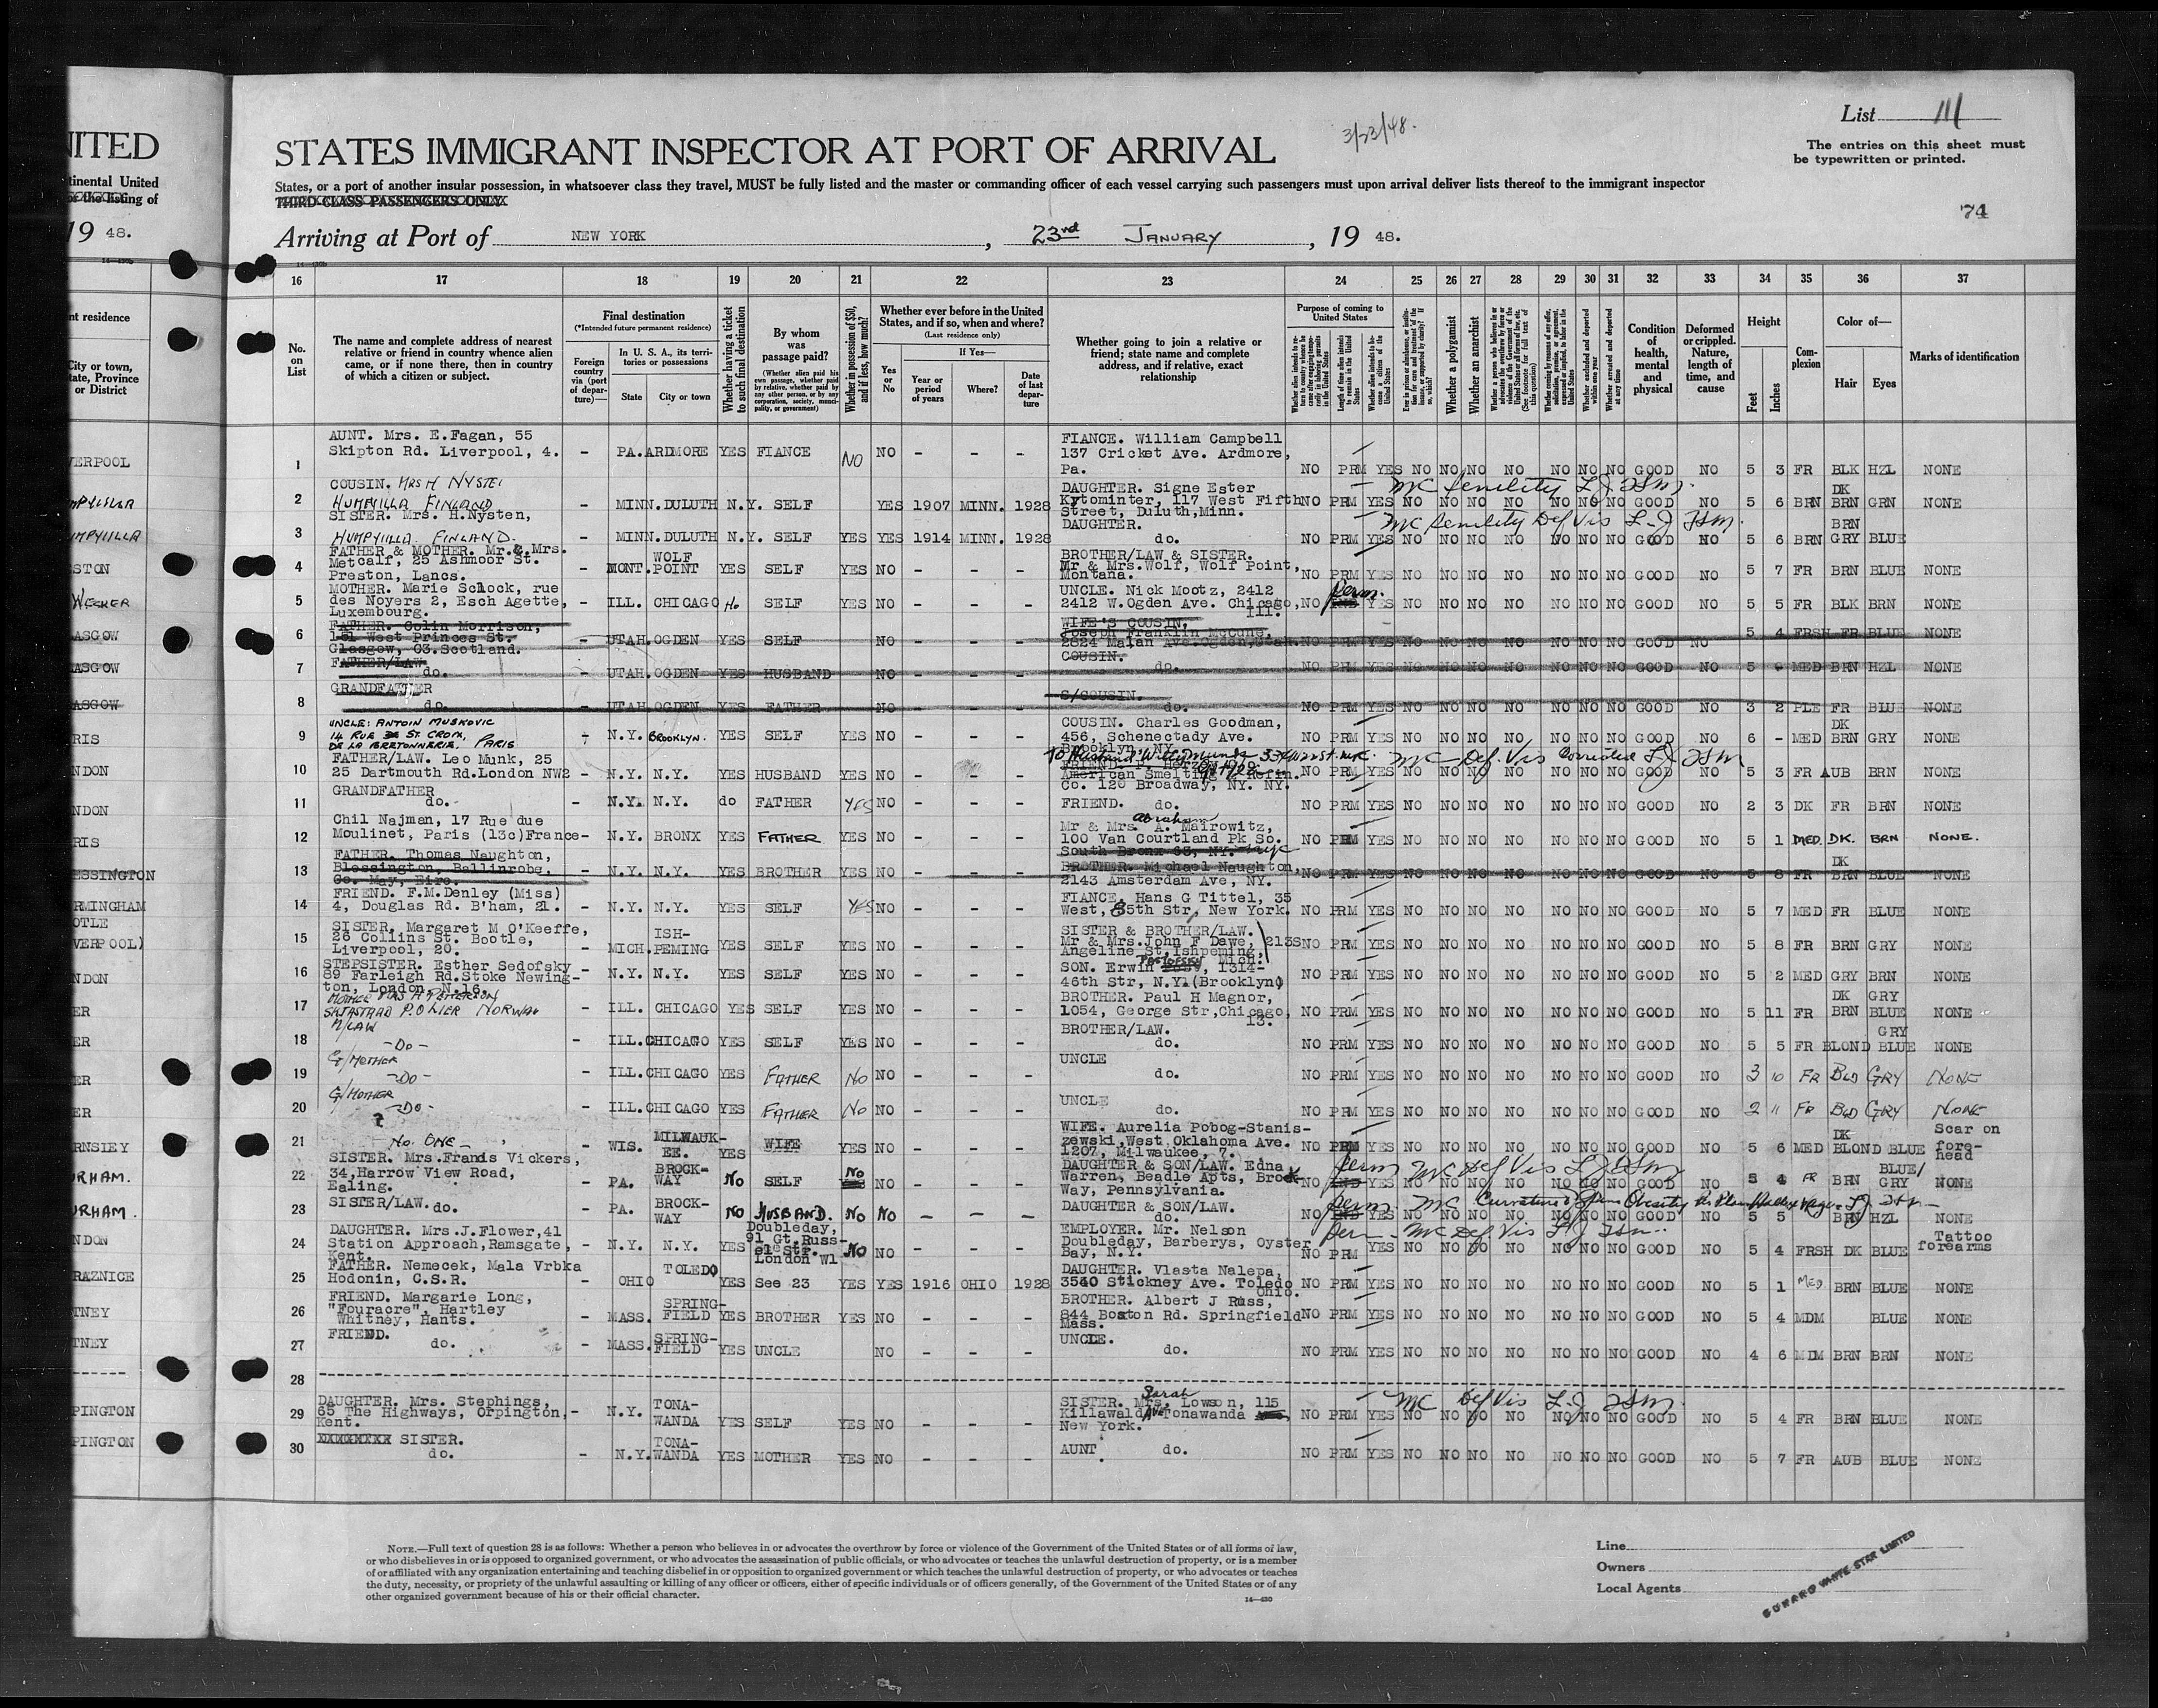 3/23/48.
List 111
The entries on this sheet must
be typewritten or printed.
NITED
STATES IMMIGRANT INSPECTOR AT PORT OF ARRIVAL
tinental United
States, or a port of another insular possession, in whatsoever class they travel, MUST be fully listed and the master or commanding officer of each vessel carrying such passengers must upon arrival deliver lists thereof to the immigrant inspector
THIRD-CLASS PASSENGERS ONLY
74
19 48.
Arriving at Port of NEW YORK , 23rd January , 19 48.
16 17 18 19 20 21 22 23 24 25 26 27 28 29 30 31 32 33 34 35 36 37
nt residence
City or town,
tate, Province
or District
No. on List
The name and complete address of nearest
relative or friend in country whence alien
came, or if none there, then in country
of which a citizen or subject.
Final destination
(*Intended future permanent residence)
Foreign country via (port of departure)—
In U. S. A., its territories or possessions
State City or town
Whether having a ticket to such final destination
By whom was passage paid?
(Whether alien paid his own passage, whether paid by relative, whether paid by any other person, or by any corporation, society, municipality, or government)
Whether in possession of $50, and if less, how much?
Whether ever before in the United States, and if so, when and where?
(Last residence only)
Yes or No
If Yes—
Year or period of years
Where?
Date of last departure
Whether going to join a relative or
friend; state name and complete
address, and if relative, exact
relationship
Purpose of coming to United States
Whether a polygamist
Whether an anarchist
Condition of health, mental and physical
Deformed or crippled. Nature, length of time, and cause
Height
Feet Inches
Complexion
Color of—
Hair Eyes
Marks of identification
VERPOOL
1 AUNT. Mrs. E.Fagan, 55
Skipton Rd. Liverpool, 4. - PA. ARDMORE YES FIANCE NO NO - - - FIANCE. William Campbell
137 Cricket Ave. Ardmore,
Pa. NO PRM YES NO NO NO NO NO NO NO GOOD NO 5 3 FR BLK HZL NONE
2 COUSIN. MRS H NYSTEN
HUMPYILLA FINLAND - MINN. DULUTH N.Y. SELF YES 1907 MINN. 1928 DAUGHTER. Signe Ester
Kytominter, 117 West Fifth
Street, Duluth, Minn. NO PRM YES NO NO NO NO NO NO NO GOOD NO 5 6 BRN DK BRN GRN NONE
MC Senility
3 SISTER. Mrs. H.Nysten,
HUMPYILLA. FINLAND. - MINN. DULUTH N.Y. SELF YES YES 1914 MINN. 1928 DAUGHTER.
do. NO PRM YES NO NO NO NO NO NO NO GOOD NO 5 6 BRN BRN GRY BLUE
MC Senility Def Vis
STON
4 FATHER & MOTHER. Mr.& Mrs.
Metcalf, 25 Ashmoor St.
Preston, Lancs. - MONT. WOLF POINT YES SELF YES NO - - - BROTHER/LAW & SISTER.
Mr & Mrs.Wolf, Wolf Point,
Montana. NO PRM YES NO NO NO NO NO NO NO GOOD NO 5 7 FR BRN BLUE NONE
5 MOTHER. Marie Sclock, rue
des Noyers 2, Esch Agette,
Luxembourg. - ILL. CHICAGO No SELF YES NO - - - UNCLE. Nick Mootz, 2412
2412 W.Ogden Ave. Chicago,
Ill. NO Perm. YES NO NO NO NO NO NO NO GOOD NO 5 5 FR BLK BRN NONE
ASGOW
6 FATHER. Colin Morrison,
151 West Princes St.
Glasgow, C3.Scotland. - UTAH. OGDEN YES SELF NO - - - WIFE'S COUSIN.
Joseph Franklin McCune,
2824 Malan Ave.Ogden,Utah. NO PRM YES NO NO NO NO NO NO NO GOOD NO 5 4 FRSH FR BLUE NONE
ASGOW
7 FATHER/LAW
do. - UTAH. OGDEN YES HUSBAND NO - - - COUSIN.
do. NO PRM YES NO NO NO NO NO NO NO GOOD NO 5 MED BRN HZL NONE
ASGOW
8 GRANDFATHER
do. - UTAH OGDEN YES FATHER NO - - - S/COUSIN.
do. NO PRM YES NO NO NO NO NO NO NO GOOD NO 3 2 PLE FR BLUE NONE
RIS
9 UNCLE: ANTOIN MUSKOVIC
14 RUE DE ST. CROIX,
DE LA BRETONNERIE. PARIS - N.Y. BROOKLYN. YES SELF YES NO - - - COUSIN. Charles Goodman,
456, Schenectady Ave.
Brooklyn, NY. NO PRM YES NO NO NO NO NO NO NO GOOD NO 6 - MED DK BRN GRY NONE
NDON
10 FATHER/LAW. Leo Munk, 25
25 Dartmouth Rd.London NW2 - N.Y. N.Y. YES HUSBAND YES NO - - - To Husband
American Smelting & Refin.
Co. 120 Broadway, NY. NY. NO PRM YES NO NO NO NO NO NO NO GOOD NO 5 3 FR AUB BRN NONE
MC Def. Vis Corrected
NDON
11 GRANDFATHER
do. - N.Y. N.Y. do FATHER YES NO - - - FRIEND. do. NO PRM YES NO NO NO NO NO NO NO GOOD NO 2 3 DK FR BRN NONE
RIS
12 Chil Najman, 17 Rue due
Moulinet, Paris (13c)France- N.Y. BRONX YES FATHER YES NO - - - Abraham
Mr & Mrs. A. Mairowitz,
100 Van Courtland Pk So.
South Bronx 63, NY. NO PRM YES NO NO NO NO NO NO NO GOOD NO 5 1 MED. DK. BRN NONE.
ESSINGTON
13 FATHER. Thomas Naughton,
Blessington, Ballinrobe,
Co. May, Eire. - N.Y. N.Y. YES BROTHER YES NO - - - BROTHER. Michael Naughton,
2143 Amsterdam Ave, NY. NO PRM YES NO NO NO NO NO NO NO GOOD NO 5 8 FR DK BRN BLUE NONE
RMINGHAM
14 FRIEND. F.M.Denley (Miss)
4, Douglas Rd. B'ham, 21. - N.Y. N.Y. YES SELF YES NO - - - FIANCE. Hans G Tittel, 35
West, 85th Str, New York. NO PRM YES NO NO NO NO NO NO NO GOOD NO 5 7 MED FR BLUE NONE
OTLE
VERPOOL)
15 SISTER. Margaret M O'Keeffe,
26 Collins St. Bootle,
Liverpool, 20. - MICH. ISHPEMING YES SELF YES NO - - - SISTER & BROTHER/LAW.
Mr & Mrs.John F Dawe, 213S
Angeline St,Ishpeming,
Mich. NO PRM YES NO NO NO NO NO NO NO GOOD NO 5 8 FR BRN GRY NONE
NDON
16 STEPSISTER. Esther Sedofsky
89 Farleigh Rd.Stoke Newing-
ton, London, N.16. - N.Y. N.Y. YES SELF YES NO - - - SON. Erwin , 1314-
46th Str, N.Y.(Brooklyn) NO PRM YES NO NO NO NO NO NO NO GOOD NO 5 2 MED GRY BRN NONE
ER
17 MOTHER MRS A PETERSON
P.O LIER NORWAY - ILL. CHICAGO YES SELF YES NO - - - BROTHER. Paul H Magnor,
1054, George Str,Chicago,
13. NO PRM YES NO NO NO NO NO NO NO GOOD NO 5 11 FR DK BRN GRY BLUE NONE
ER
18 M/LAW
-Do- - ILL. CHICAGO YES SELF YES NO - - - BROTHER/LAW.
do. NO PRM YES NO NO NO NO NO NO NO GOOD NO 5 5 FR BLOND GRY BLUE NONE
ER
19 G/MOTHER
-Do- - ILL. CHICAGO YES FATHER No NO - - - UNCLE
do. NO PRM YES NO NO NO NO NO NO NO GOOD NO 3 10 FR BLD GRY NONE
ER
20 G/MOTHER
-Do- - ILL. CHICAGO YES FATHER No NO - - - UNCLE
do. NO PRM YES NO NO NO NO NO NO NO GOOD NO 2 11 FR BLD GRY NONE
RNSIEY
21 ?
No. ONE - - WIS. MILWAUK-
EE. YES WIFE YES NO - - - WIFE. Aurelia Pobog-Stanis-
zewski,West Oklahoma Ave.
1207, Milwaukee, 7. NO PRM YES NO NO NO NO NO NO NO GOOD NO 5 6 MED DK BLOND BLUE Scar on
fore-
head
URHAM.
22 SISTER. Mrs.Francis Vickers,
34,Harrow View Road,
Ealing. - PA. BROCK-
WAY No SELF No NO - - - DAUGHTER & SON/LAW. Edna
Warren, Beadle Apts, Brock
Way, Pennsylvania. NO Perm YES NO NO NO NO NO NO NO GOOD NO 5 4 FR BRN BLUE/
GRY NONE
MC Def Vis
URHAM.
23 SISTER/LAW. do. - PA. BROCK-
WAY NO HUSBAND. No No - - - DAUGHTER & SON/LAW.
do. NO Perm YES NO NO NO NO NO NO NO GOOD NO 5 5 BRN HZL NONE
MC Curvature of Spine Obesity
NDON
24 DAUGHTER. Mrs.J.Flower,41
Station Approach,Ramsgate,
Kent. - N.Y. N.Y. YES Doubleday,
91 Gt.Russ-
ell Str.
London W1 No NO - - - EMPLOYER. Mr. Nelson
Doubleday, Barberys, Oyster
Bay, N.Y. NO PRM YES NO NO NO NO NO NO NO GOOD NO 5 4 FRSH DK BLUE Tattoo
forearms
Perm - MC Def Vis
RAZNICE
25 FATHER. Nemecek, Mala Vrbka
Hodonin, C.S.R. - OHIO TOLEDO YES See 23 YES YES 1916 OHIO 1928 DAUGHTER. Vlasta Nalepa,
3540 Stickney Ave. Toledo
Ohio. NO PRM YES NO NO NO NO NO NO NO GOOD NO 5 1 MED. BRN BLUE NONE
TNEY
26 FRIEND. Margarie Long,
"Fouracre", Hartley
Whitney, Hants. - MASS. SPRING-
FIELD YES BROTHER YES NO - - - BROTHER. Albert J Russ,
844 Boston Rd. Springfield
Mass. NO PRM YES NO NO NO NO NO NO NO GOOD NO 5 4 MDM BLUE NONE
TNEY
27 FRIEND.
do. - MASS. SPRING-
FIELD YES UNCLE NO - - - UNCLE.
do. NO PRM YES NO NO NO NO NO NO NO GOOD NO 4 6 MDM BRN BRN NONE
28
PINGTON
29 DAUGHTER. Mrs. Stephings,
65 The Highways, Orpington,
Kent. - N.Y. TONA-
WANDA YES SELF YES NO - - - Sarah
SISTER. Mrs. Lowson, 115
Killawald Ave Tonawanda
New York. NO PRM YES NO NO NO NO NO NO NO GOOD NO 5 4 FR BRN BLUE NONE
MC Def Vis
PINGTON
30 SISTER.
do. - N.Y. TONA-
WANDA YES MOTHER YES NO - - - AUNT do. NO PRM YES NO NO NO NO NO NO NO GOOD NO 5 7 FR AUB BLUE NONE
NOTE.—Full text of question 28 is as follows: Whether a person who believes in or advocates the overthrow by force or violence of the Government of the United States or of all forms of law,
or who disbelieves in or is opposed to organized government, or who advocates the assassination of public officials, or who advocates or teaches the unlawful destruction of property, or is a member
of or affiliated with any organization entertaining and teaching disbelief in or opposition to organized government or which teaches the unlawful destruction of property, or who advocates or teaches
the duty, necessity, or propriety of the unlawful assaulting or killing of any officer or officers, either of specific individuals or of officers generally, of the Government of the United States or of any
other organized government because of his or their official character.
Line
Owners
Local Agents
CUNARD WHITE STAR LIMITED